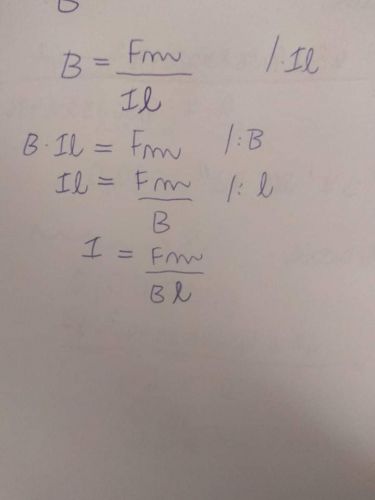 B = Fm / Il /·Il
B·Il = Fm /:B
Il = Fm / B /:l
I = Fm / Bl